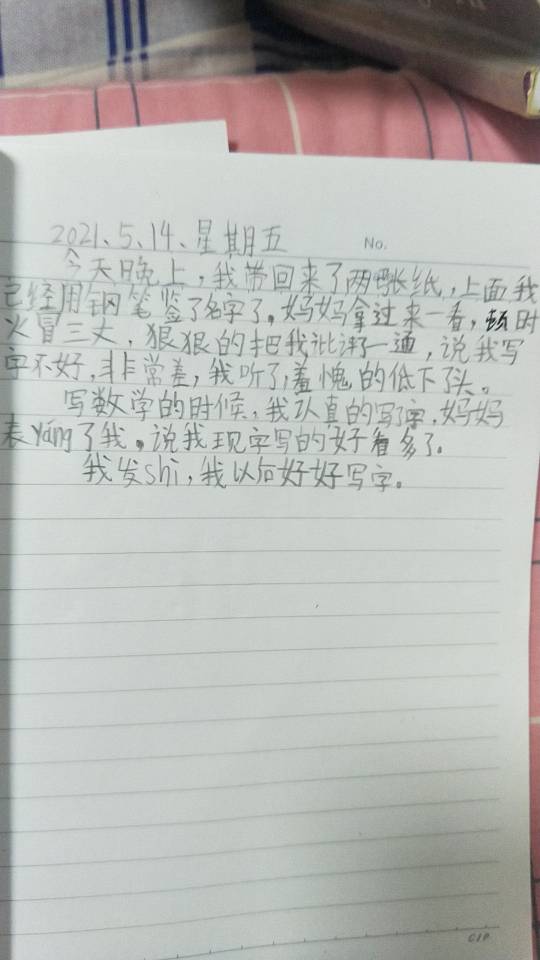 2021、5、14、星期五
No.
今天晚上，我带回来了两张纸，上面我
已经用钢笔签了名字了。妈妈拿过来一看，顿时
火冒三丈，狠狠的把我批评了一通，说我写
字不好，非常差，我听了，羞愧的低下了头。
写数学的时候，我认真的写了字，妈妈
表yáng了我。说我现字写的好看多了。
我发shì，我以后好好写字。